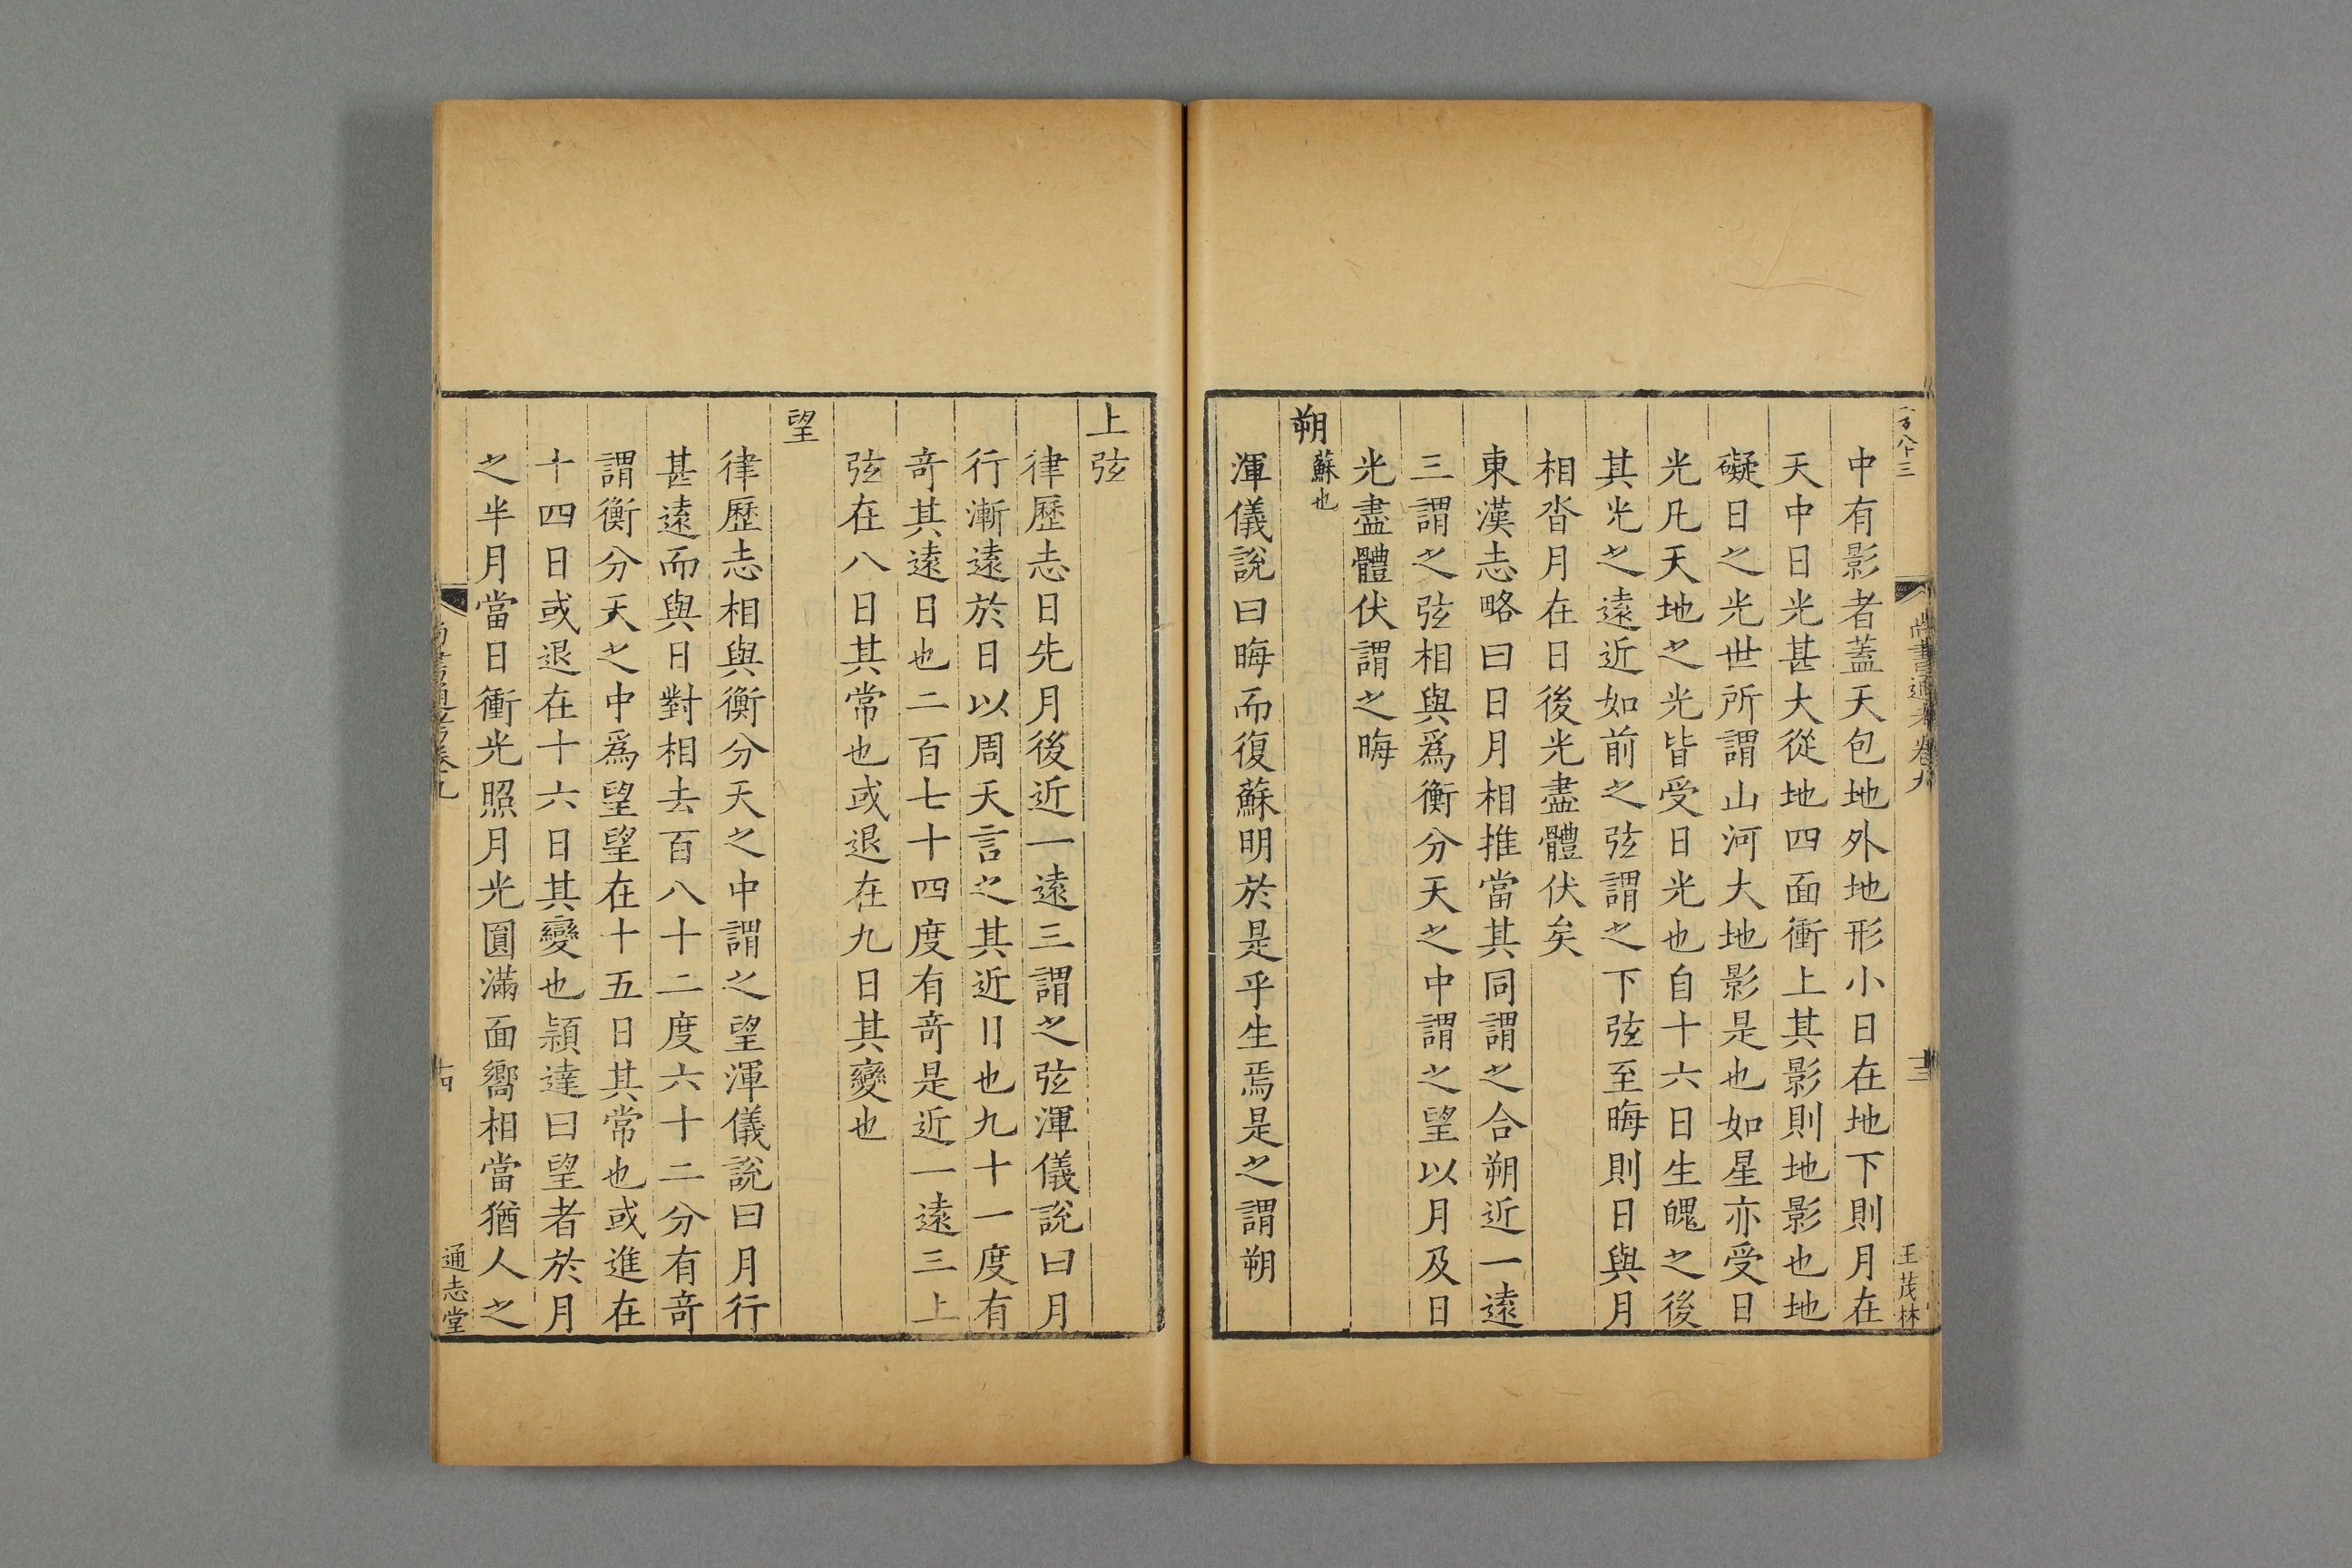 尚書通考卷九
十三
王茂林
中有影者蓋天包地外地形小日在地下則月在
天中日光甚大從地四面衝上其影則地影也地
礙日之光世所謂山河大地影是也如星亦受日
光凡天地之光皆受日光也自十六日生魄之後
其光之遠近如前之弦謂之下弦至晦則日與月
相沓月在日後光盡體伏矣
東漢志略曰日月相推當其同謂之合朔近一遠
三謂之弦相與爲衡分天之中謂之望以月及日
光盡體伏謂之晦
朔蘇也
渾儀說曰晦而復蘇明於是乎生焉是之謂朔
上弦
律歷志日先月後近一遠三謂之弦渾儀說曰月
行漸遠於日以周天言之其近日也九十一度有
竒其遠日也二百七十四度有竒是近一遠三上
弦在八日其常也或退在九日其變也
望
律歷志相與衡分天之中謂之望渾儀說曰月行
甚遠而與日對相去百八十二度六十二分有竒
謂衡分天之中爲望望在十五日其常也或進在
十四日或退在十六日其變也穎達曰望者於月
之半月當日衝光照月光圓滿面嚮相當猶人之
尚書通考卷九
十四
通志堂